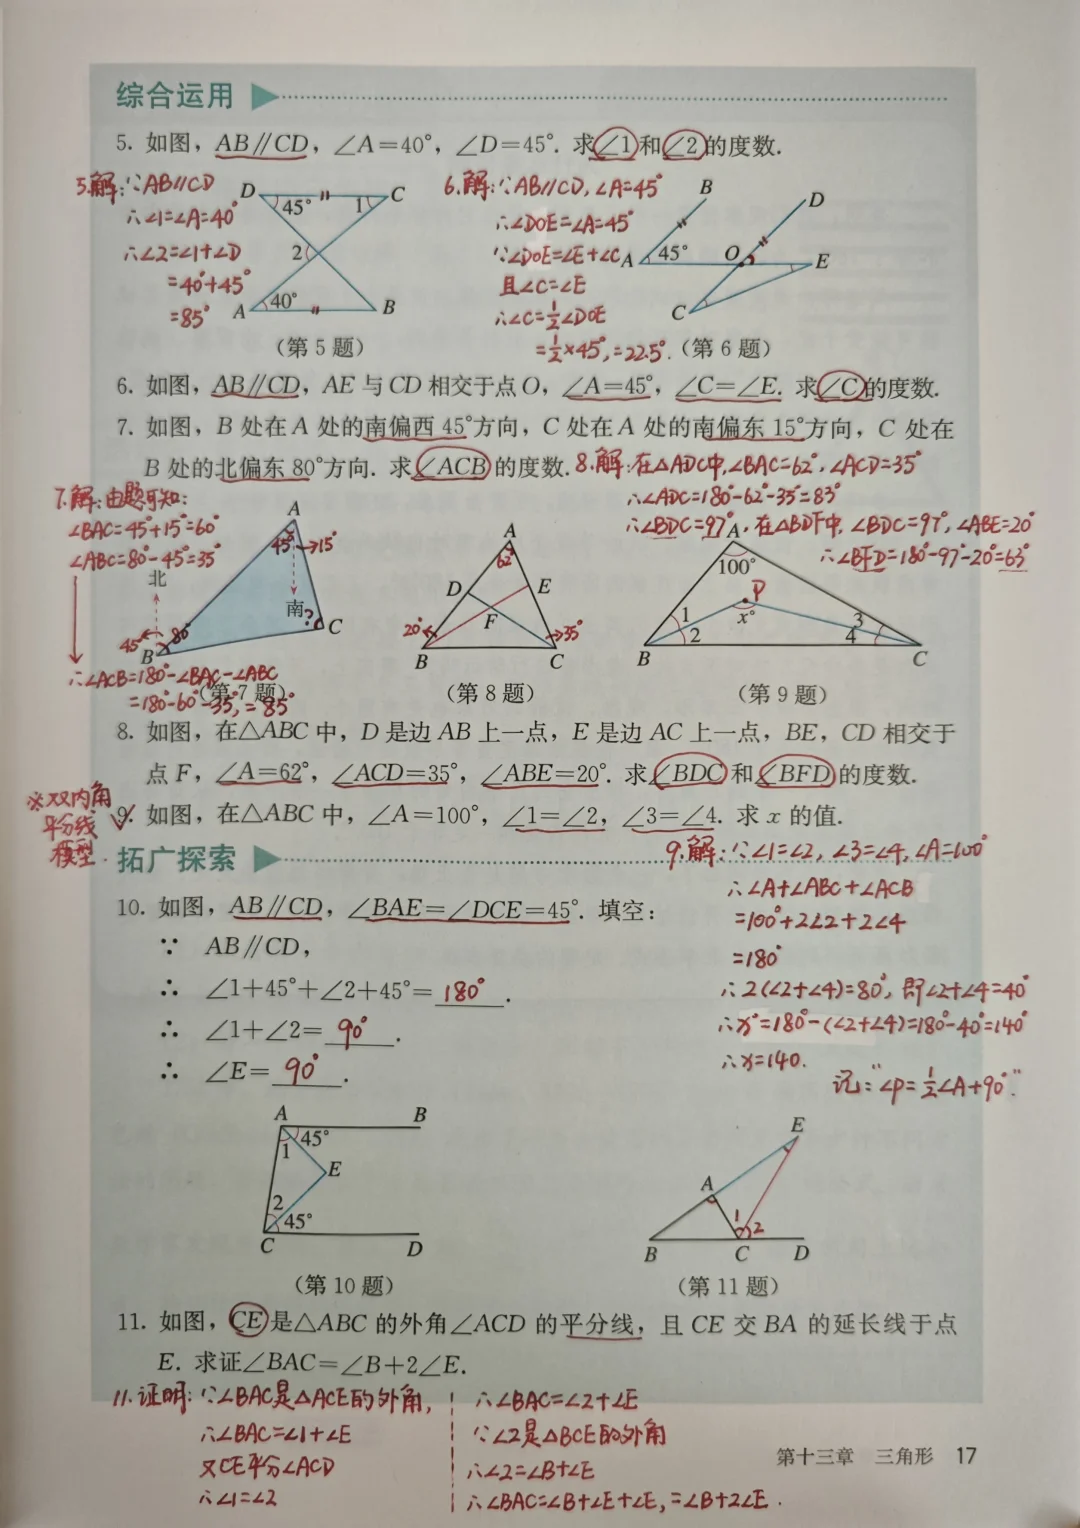 综合运用
5. 如图，AB∥CD，∠A=40°，∠D=45°. 求∠1和∠2的度数.
5.解:∵AB∥CD
∴∠1=∠A=40°
∴∠2=∠1+∠D
=40°+45°
=85°
D 45° 1 C
2
A 40° B
(第 5 题)
6.解:∵AB∥CD,∠A=45°
∴∠DOE=∠A=45°
∵∠DOE=∠E+∠C
且∠C=∠E
∴∠C=½∠DOE
=½×45°,=22.5°.
B D
A 45° O E
C
(第 6 题)
6. 如图，AB∥CD，AE 与 CD 相交于点 O，∠A=45°，∠C=∠E. 求∠C的度数.
7. 如图，B 处在 A 处的南偏西 45°方向，C 处在 A 处的南偏东 15°方向，C 处在
B 处的北偏东 80°方向. 求∠ACB的度数.
8.解:在△ADC中,∠BAC=62°,∠ACD=35°
∴∠ADC=180°-62°-35°=83°
∴∠BDC=97°,在△BDF中,∠BDC=97°,∠ABE=20°
∴∠BFD=180°-97°-20°=63°
7.解:由题可知:
∠BAC=45°+15°=60°
∠ABC=80°-45°=35°
∴∠ACB=180°-∠BAC-∠ABC
=180°-60°-35°,=85°
A
45° 15°
北
南 ? C
45° 80°
B
(第 7 题)
A
62°
D E
F
20° 35°
B C
(第 8 题)
A
100°
P
1 x° 3
2 4
B C
(第 9 题)
8. 如图，在△ABC 中，D 是边 AB 上一点，E 是边 AC 上一点，BE，CD 相交于
点 F，∠A=62°，∠ACD=35°，∠ABE=20°. 求∠BDC和∠BFD的度数.
※双内角
平分线
模型.
9. 如图，在△ABC 中，∠A=100°，∠1=∠2，∠3=∠4. 求 x 的值.
拓广探索
9.解:∵∠1=∠2,∠3=∠4,∠A=100°
∴∠A+∠ABC+∠ACB
=100°+2∠2+2∠4
=180°
∴2(∠2+∠4)=80°,即∠2+∠4=40°
∴x°=180°-(∠2+∠4)=180°-40°=140°
∴x=140.
记:"∠P=½∠A+90°"
10. 如图，AB∥CD，∠BAE=∠DCE=45°. 填空：
∵ AB∥CD，
∴ ∠1+45°+∠2+45°=180°.
∴ ∠1+∠2=90°.
∴ ∠E=90°.
A B
1 45°
E
2 45°
C D
(第 10 题)
E
A
1 2
B C D
(第 11 题)
11. 如图，CE是△ABC 的外角∠ACD 的平分线，且 CE 交 BA 的延长线于点
E. 求证∠BAC=∠B+2∠E.
11.证明:∵∠BAC是△ACE的外角,
∴∠BAC=∠1+∠E
又CE平分∠ACD
∴∠1=∠2
∴∠BAC=∠2+∠E
∵∠2是△BCE的外角
∴∠2=∠B+∠E
∴∠BAC=∠B+∠E+∠E,=∠B+2∠E.
第十三章 三角形 17